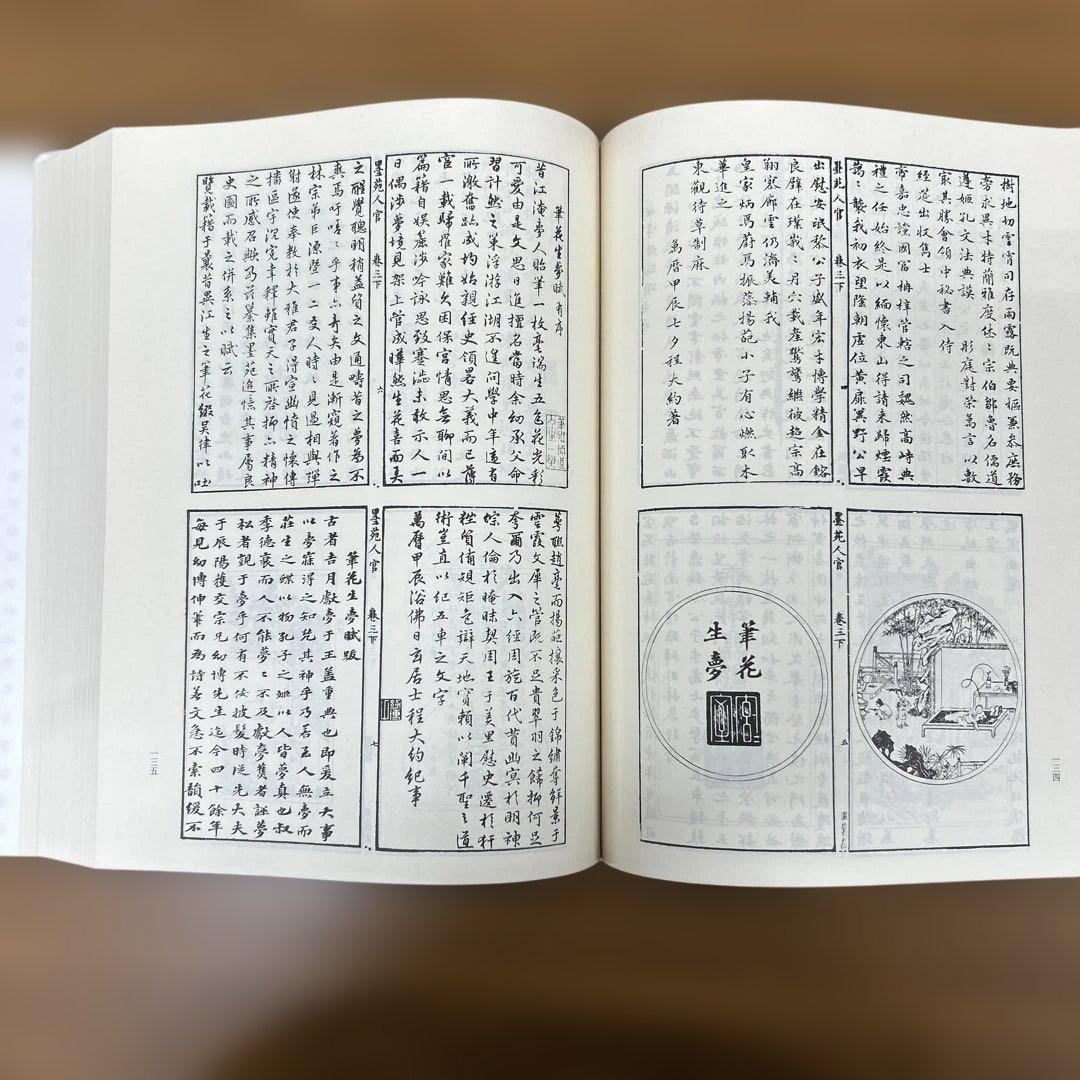 樹地切雲霄司存雨露既典要樞兼叅庶務
旁求異木特蘭雅度宗伯鄒魯名儒道
遵姬孔文法典謨 彤庭對策萬言以數
家其勝會領中秘書入侍
經筵出收雋士
帝嘉忠讜國梓管轄之司巍然高峙典
禮之任始終是以緬懷東山得請來歸煙霞
襲我初衣望隆朝虛位黃扉冀野公早
墨苑人官 卷三下 一
出慰安氓黎公子盛年宏才博學精金在鎔
良在璞丹穴載產鸞鷟繼彼超宗高
翔寥廓雲仍濟美輔我
皇家炳焉蔚焉振藻揚葩小子有心燃取木
華進之
東觀待草制麻
萬曆甲辰七夕程大約著
墨苑人官 卷三下 五
筆花
生夢
一三四
筆花生夢賦 有序
昔江淹夢人貽筆一枚毫端生五色花光彩
可愛由是文思日進擅名當時余幼承父命
習計然之策浮游江湖不遑問學中年遠有
所激奮跅成均始親經史領畧大義而已舊
官一載歸罹家難久困保宮情思無聊間以
篇籍自娛展涉吟詠思致蹇澁未敢示人一
日偶涉夢境見架上管城曄然生花喜而異
墨苑人官 卷三下 六
之醒覺聰明稍益質之文通疇昔之夢蓋不
異焉吁嗟嗟乎事亦奇矣由是漸窺著作之
林宗弟巨源暨一二友人時時見過相與彈
射遂使奉教於大雅君子得宣幽憤之懷傳
播區宇沉冤幸釋雖實天之所啓抑亦精神
之所感召歟乃纂集墨苑追憶其事屬良
史圖而載之併系之以賦云
覽載稽于曩昔異江生之筆花綴吳律以吐
萼聯趙毫而揚葩攘采色于錦繡奪鮮景于
雲霞文犀之管既不足貴翠羽之餙抑何足
夸爾乃出入六經周旋百代昔幽冥於明神
綜人倫於曖昧契周王于羑里慰史遷於犴
狴質侔規矩色辯天地實賴以闡千聖之道
術豈直以紀五車之文字
萬曆甲辰浴佛日玄居士程大約紀事
墨苑人官 卷三下 七
筆花生夢賦跋
古者吉月獻夢于王蓋重典也即爰立大事
以夢寐得之知兆其神乎乃若至人無夢而
莊生之蝶以物孔子之以人皆夢真也叔
季德衰而人不能夢夢不及獻夢者誣夢
者觀于夢乎何有不佞披髮時從先大夫
于辰陽獲交宗兄幼博先生迄今四十餘年
每見幼博伸筆而為詩若文急不索韻緩不
一三五